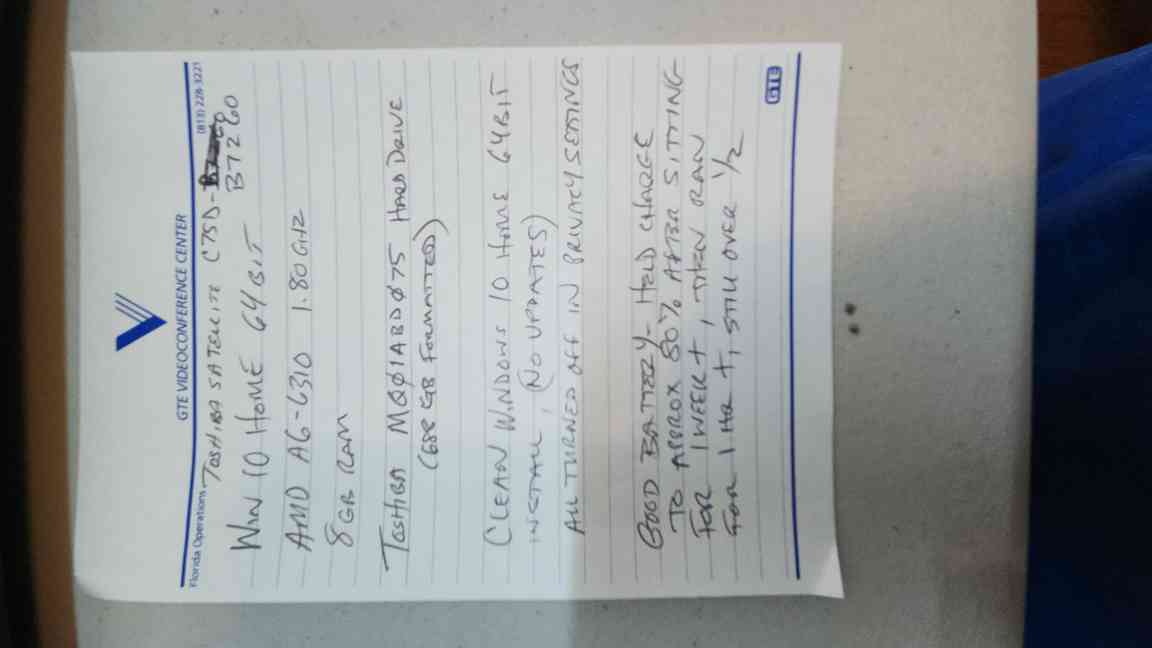 GTE VIDEOCONFERENCE CENTER
Florida Operations (813) 228-3221
TOSHIBA SATELLITE C75D-
B7260
WIN 10 HOME 64 BIT
AMD A6-6310 1.80 GHZ
8 GB RAM
TOSHIBA MQØ1ABDØ75 HARD DRIVE
(688 GB FORMATTED)
CLEAN WINDOWS 10 HOME 64BIT
INSTALL, (NO UPDATES)
ALL TURNED OFF IN PRIVACY SETTINGS
GOOD BATTERY - HELD CHARGE
TO APPROX 80% AFTER SITTING
FOR 1 WEEK +, THEN RAN
FOR 1 HR +, STILL OVER 1/2
GTE